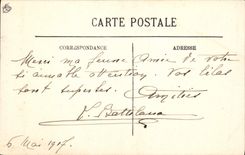 CARTE POSTALE
CORRESPONDANCE
ADRESSE
Merci ma femme amie de votre
si aimable attention. Vos lilas
sont superbes. Amitiés
6 Mai 1907.